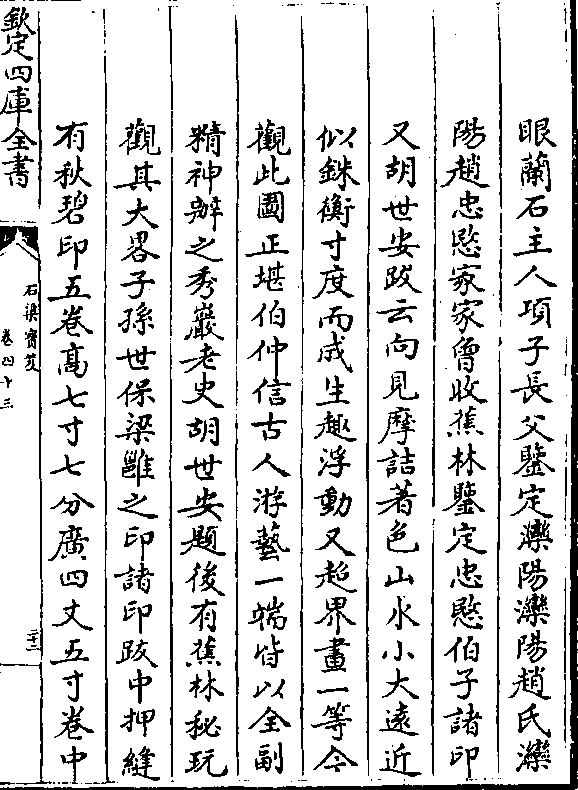 眼蘭石主人項子長父鑒定灤陽灤陽趙氏灤
陽趙忠愍家家曾收蕉林鑒定忠愍伯子諸印
又胡世安跋云向見摩詰著色山水小大遠近
似銖衡寸度而成生趣浮動又超界畫一等今
觀此圖正堪伯仲信古人游藝一端皆以全副
精神辦之秀巖老史胡世安題後有蕉林秘玩
觀其大畧子孫世保梁雝之印諸印跋中押縫
有秋碧印五卷高七寸七分廣四丈五寸卷中
欽定四庫全書
石渠寶笈
卷四十三
二十三